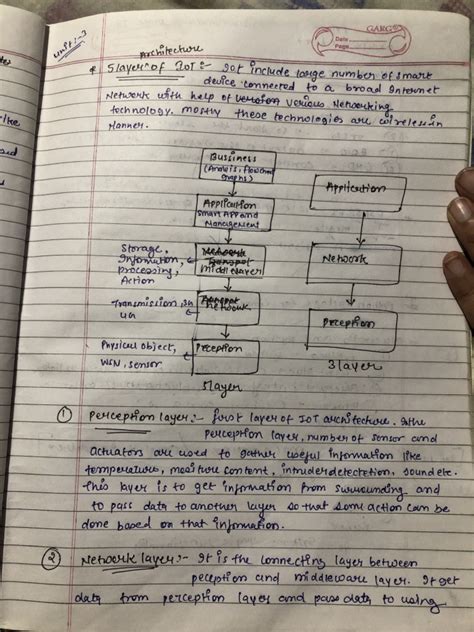 GARGS
Date
Page
Unit:-3
Architecture
* 5 layer of IoT :- Iot include large number of smart
device connected to a broad Internet
Network with help of version verious Networking
technology. mostly these technologies are wireless in
Manner.
Bussiness
(Analysis, flowchart
Graphs)
Application
Application
Smart APP and
Management
Storage,
Information,
processing,
Action
Network
Transpot
middlelayer
Network
Transmission, 3G
4G
Transpot
Network
Perception
Physical Object,
WSN, sensor
Preception
3 layer
5 layer
① Perception layer :- first layer of IoT architecture. In the
perception layer, number of sensor and
actuators are used to gather useful information like
temperature, moisture content, intruder detectetion, sound etc.
this layer is to get information from surrounding and
to pass data to another layer so that some action can be
done based on that information.
② Network layer :- It is the connecting layer between
preception and middleware layer. It get
data from perception layer and pass data to using